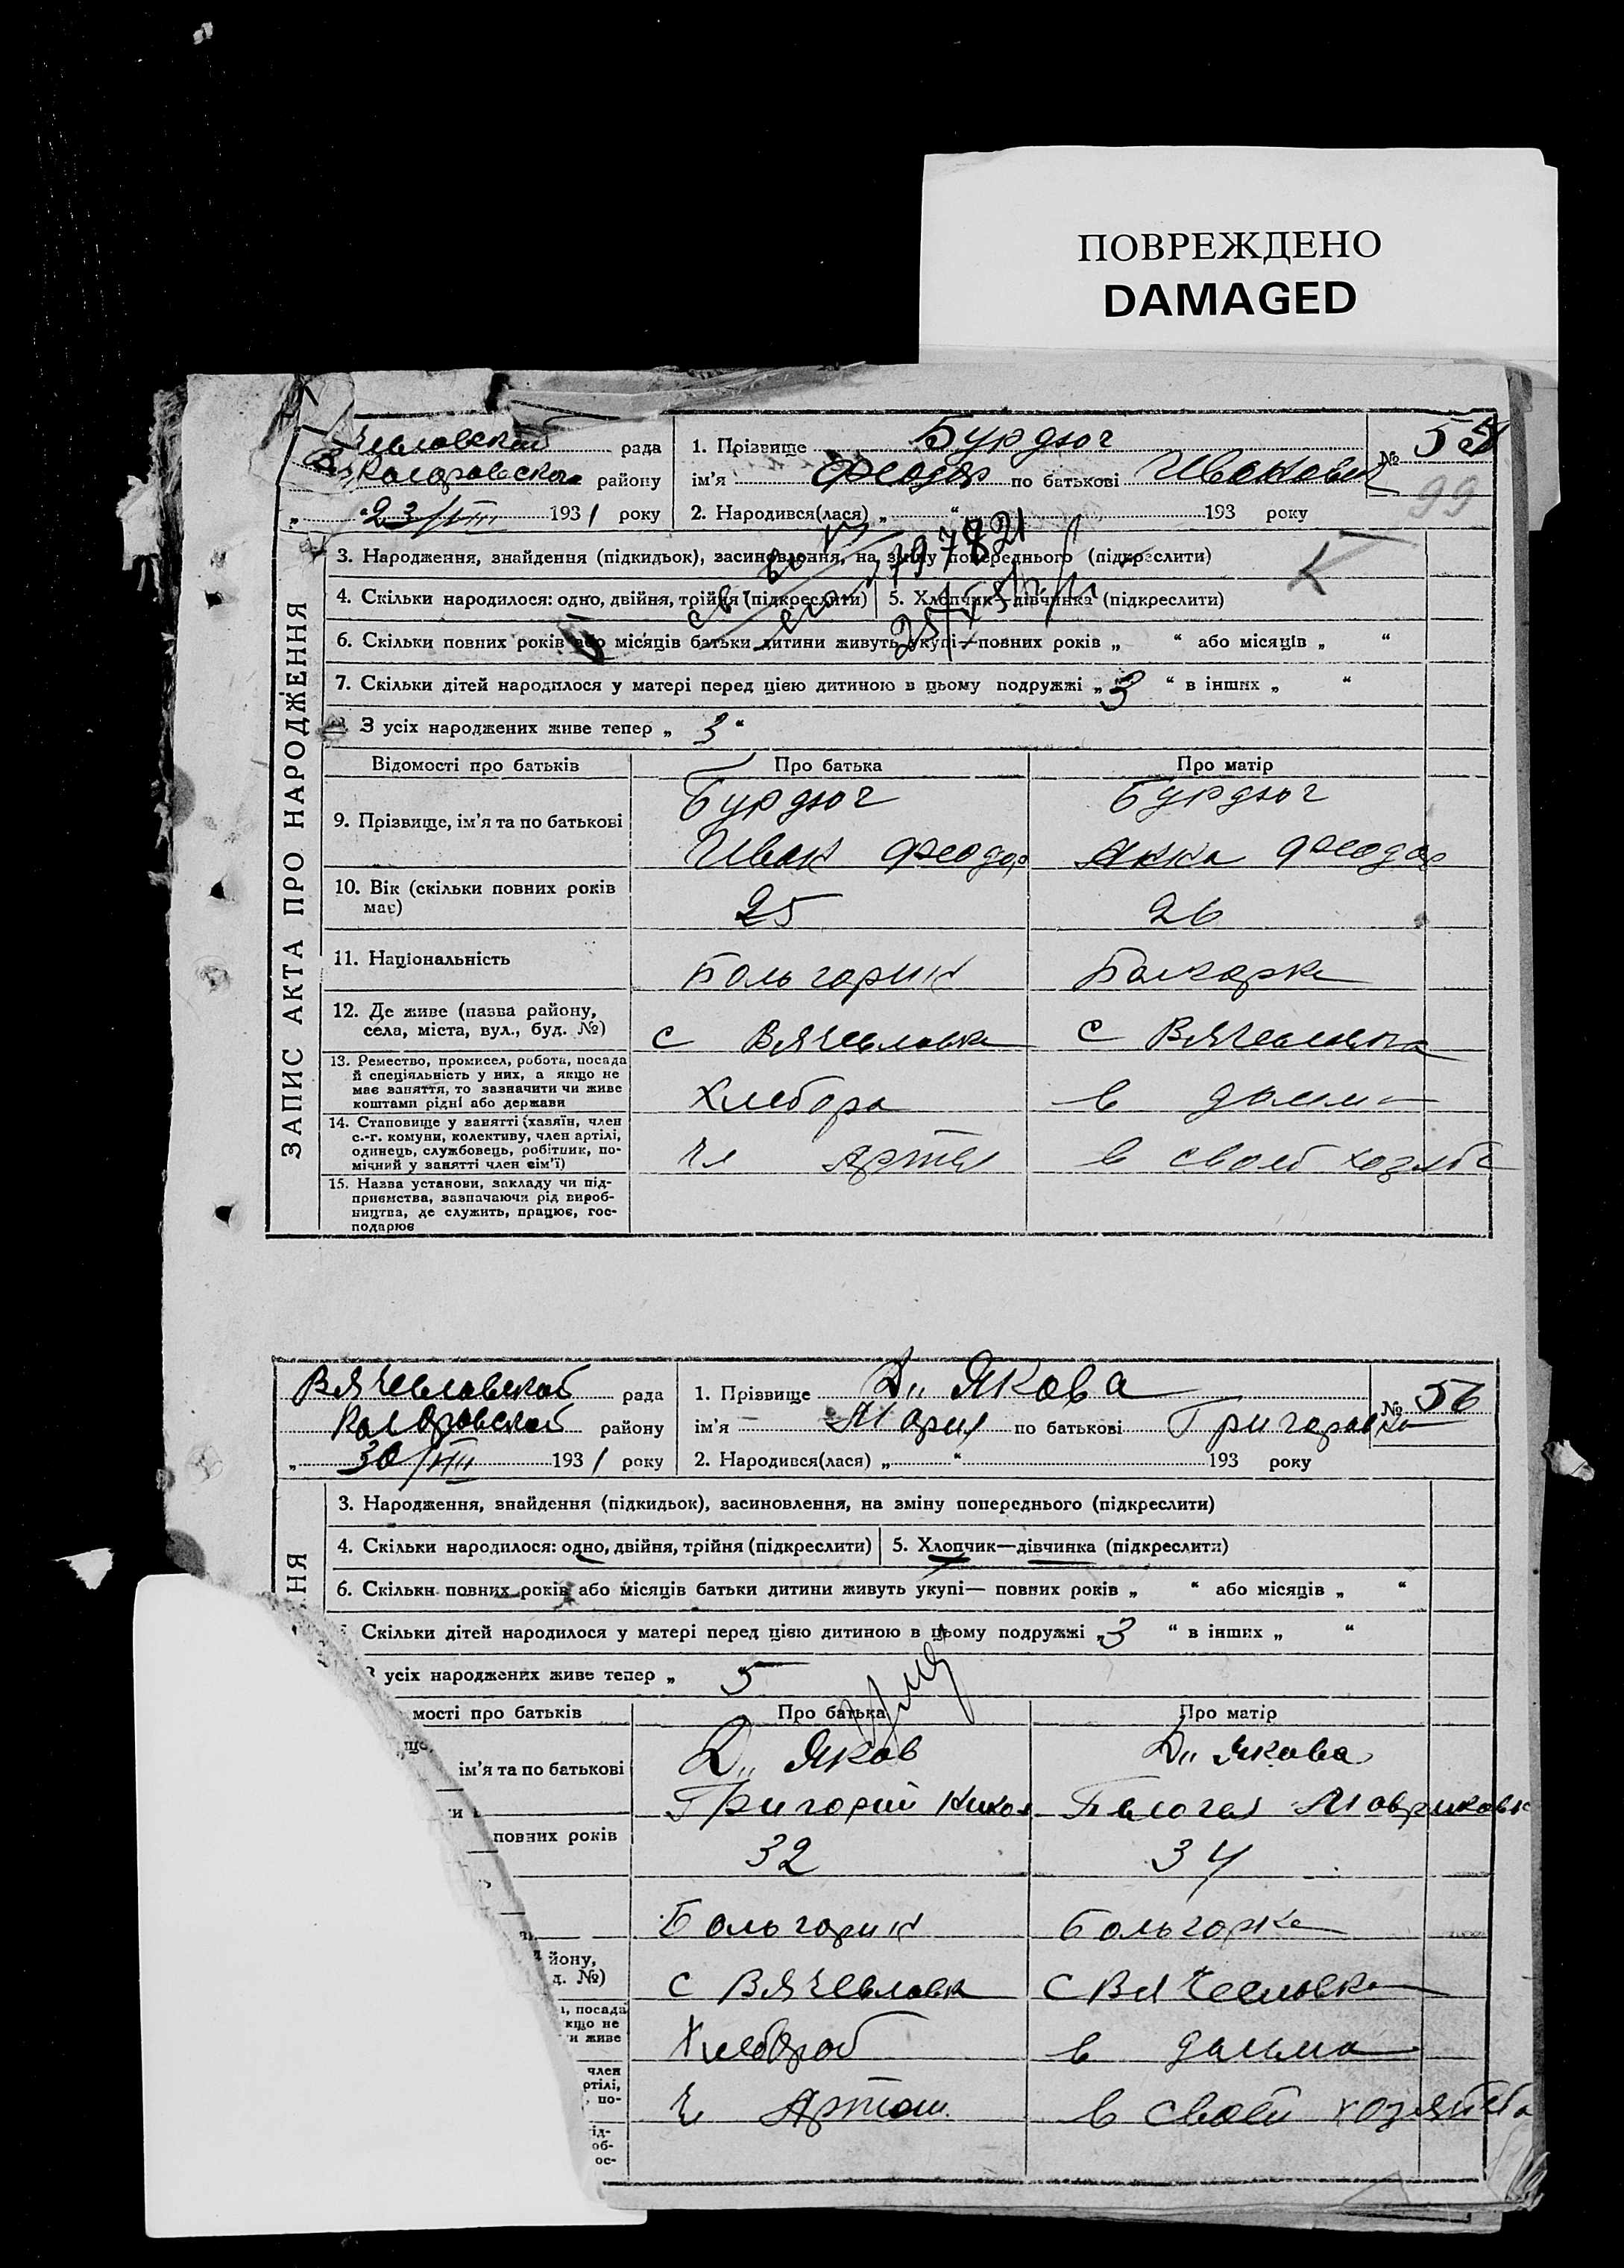 ПОВРЕЖДЕНО
DAMAGED
рада
району
„ 23/VIII 1931 року
1. Прізвище Бурдюг
ім'я Феодор по батькові Иванович
2. Народився(лася) „ “ 193 року
№ 55
99
ЗАПИС АКТА ПРО НАРОДЖЕННЯ
3. Народження, знайдення (підкидьок), засиновлення, на зміну попереднього (підкреслити)
К
4. Скільки народилося: одно, двійня, трійня (підкреслити) 5. Хлопчик—дівчинка (підкреслити)
6. Скільки повних років або місяців батьки дитини живуть укупі—повних років „ “ або місяців „ “
7. Скільки дітей народилося у матері перед цією дитиною в цьому подружжі „3 “ в інших „ “
З усіх народжених живе тепер „ 3 “
Відомості про батьків Про батька Про матір
9. Прізвище, ім'я та по батькові
Бурдюг Бурдюг
Иван Феодор Анна Феодор
10. Вік (скільки повних років має)
25 26
11. Національність
Больгорин Болгорка
12. Де живе (назва району, села, міста, вул., буд. №)
с Вячеславка с Вячеславка
13. Ремество, промисел, робота, посада
й спеціяльність у них, а якщо не
має заняття, то зазначити чи живе
коштами рідні або держави
Хлебора в дома
14. Становище у занятті (хазяїн, член
с.-г. комуни, колективу, член артілі,
одинець, службовець, робітник, по-
мічний у занятті член сім'ї)
Чл Артел в своей
15. Назва установи, закладу чи під-
приємства, зазначаючи рід вироб-
ництва, де служить, працює, гос-
подарює
Вячеславской рада
Коларовской району
„ 30/VIII 1931 року
1. Прізвище Д„ Якова
ім'я Мария по батькові Григоровна
2. Народився(лася) „ “ 193 року
№ 56
ННЯ
3. Народження, знайдення (підкидьок), засиновлення, на зміну попереднього (підкреслити)
4. Скільки народилося: одно, двійня, трійня (підкреслити) 5. Хлопчик—дівчинка (підкреслити)
6. Скільки повних років або місяців батьки дитини живуть укупі— повних років „ “ або місяців „ “
Скільки дітей народилося у матері перед цією дитиною в цьому подружжі „3 “ в інших „ “
усіх народжених живе тепер „ 5
мості про батьків Про батька Про матір
ім'я та по батькові
Д„ Яков Д„ Якова
Григорий Никол Пелогея Мавриковн
повних років
32 34
Больгорин Больгорка
йону,
д. №)
с Вячеславк с Вячеславка
посада
кщо не
и живе
Хлебороб в дома
член
ртілі,
по-
Чл Артели в своей хозяйства
ід-
об-
ос-